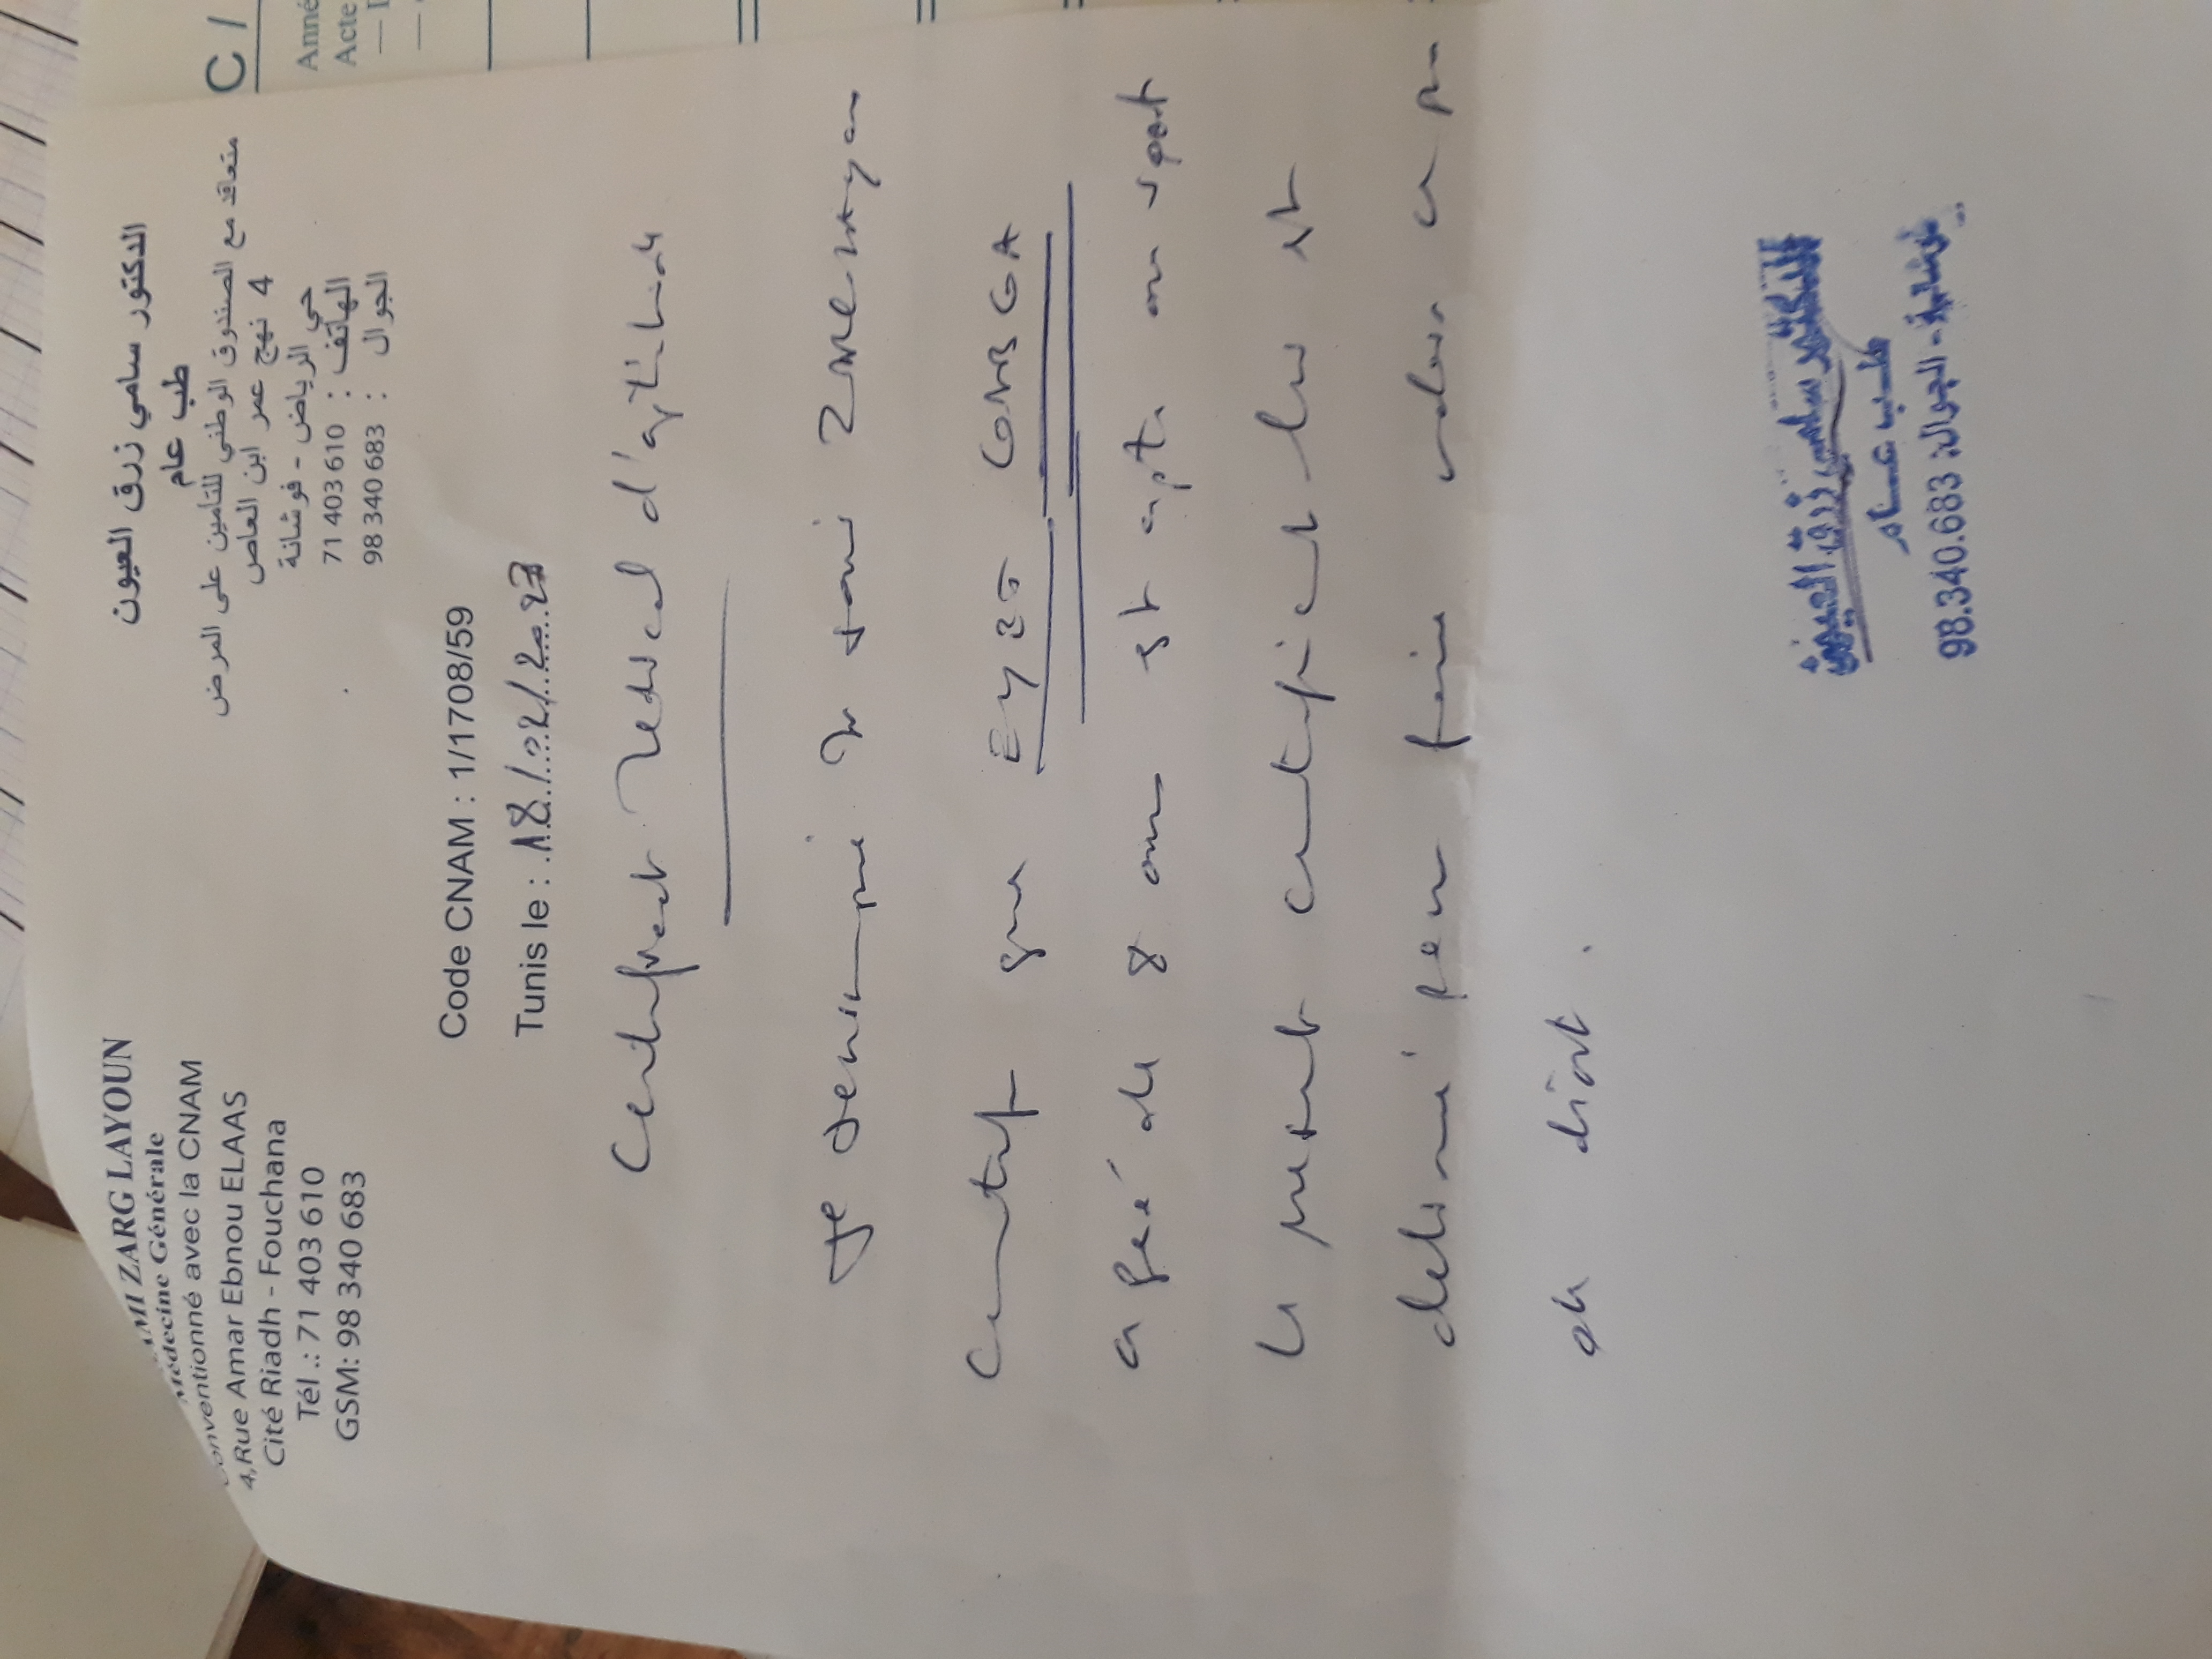 AMI ZARG LAYOUN
Médecine Générale
Conventionné avec la CNAM
4,Rue Amar Ebnou ELAAS
Cité Riadh - Fouchana
Tél .: 71 403 610
GSM: 98 340 683
الدكتور سامي زرق العيون
طب عام
متعاقد مع الصندوق الوطني للتأمين على المرض
4 نهج عمر ابن العاص
حي الرياض - فوشانة
الهاتف : 71 403 610
الجوال : 98 340 683
C /
Anné
Acte
Code CNAM : 1/1708/59
Tunis le : 18/02/2023
Certificat Medical d'aptitude
Je soussigné Dr sami
Certifie que GONBGA
agée de 8 ans est apte au sport
le present certificat lui est
delivré pour faire valoir ce que
de droit .
الدكتور سامي زرق العيون
طب عام
فوشانة - الجوال: 98.340.683